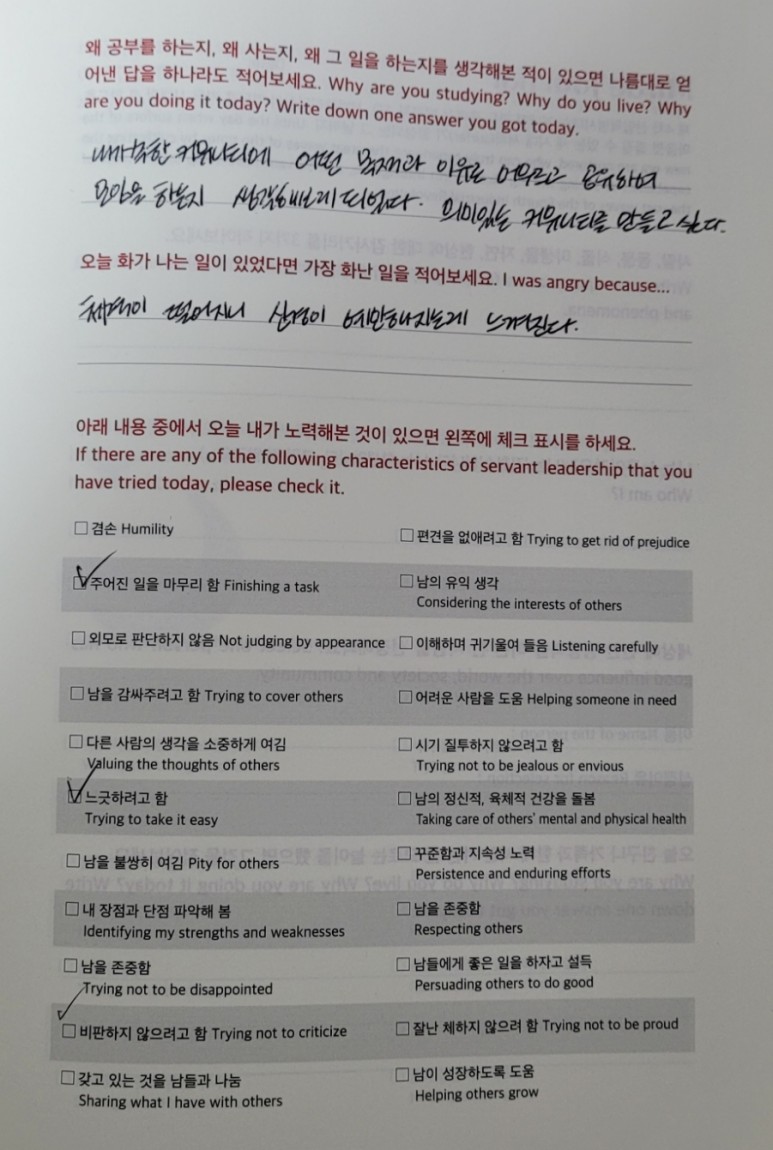 왜 공부를 하는지, 왜 사는지, 왜 그 일을 하는지를 생각해본 적이 있으면 나름대로 얻
어낸 답을 하나라도 적어보세요. Why are you studying? Why do you live? Why
are you doing it today? Write down one answer you got today.
내가 속한 커뮤니티에 어떤 목재라 이유로 어우르고 공유하며
모임을 하는지 생각해보게 되었다. 의미있는 커뮤니티를 만들고 싶다.
오늘 화가 나는 일이 있었다면 가장 화난 일을 적어보세요. I was angry because...
체력이 떨어지니 신경이 예민해지는게 느껴진다.
아래 내용 중에서 오늘 내가 노력해본 것이 있으면 왼쪽에 체크 표시를 하세요.
If there are any of the following characteristics of servant leadership that you
have tried today, please check it.
겸손 Humility
편견을 없애려고 함 Trying to get rid of prejudice
주어진 일을 마무리 함 Finishing a task
남의 유익 생각
Considering the interests of others
외모로 판단하지 않음 Not judging by appearance
이해하며 귀기울여 들음 Listening carefully
남을 감싸주려고 함 Trying to cover others
어려운 사람을 도움 Helping someone in need
다른 사람의 생각을 소중하게 여김
Valuing the thoughts of others
시기 질투하지 않으려고 함
Trying not to be jealous or envious
느긋하려고 함
Trying to take it easy
남의 정신적, 육체적 건강을 돌봄
Taking care of others' mental and physical health
남을 불쌍히 여김 Pity for others
꾸준함과 지속성 노력
Persistence and enduring efforts
내 장점과 단점 파악해 봄
Identifying my strengths and weaknesses
남을 존중함
Respecting others
남을 존중함
Trying not to be disappointed
남들에게 좋은 일을 하자고 설득
Persuading others to do good
비판하지 않으려고 함 Trying not to criticize
잘난 체하지 않으려 함 Trying not to be proud
갖고 있는 것을 남들과 나눔
Sharing what I have with others
남이 성장하도록 도움
Helping others grow